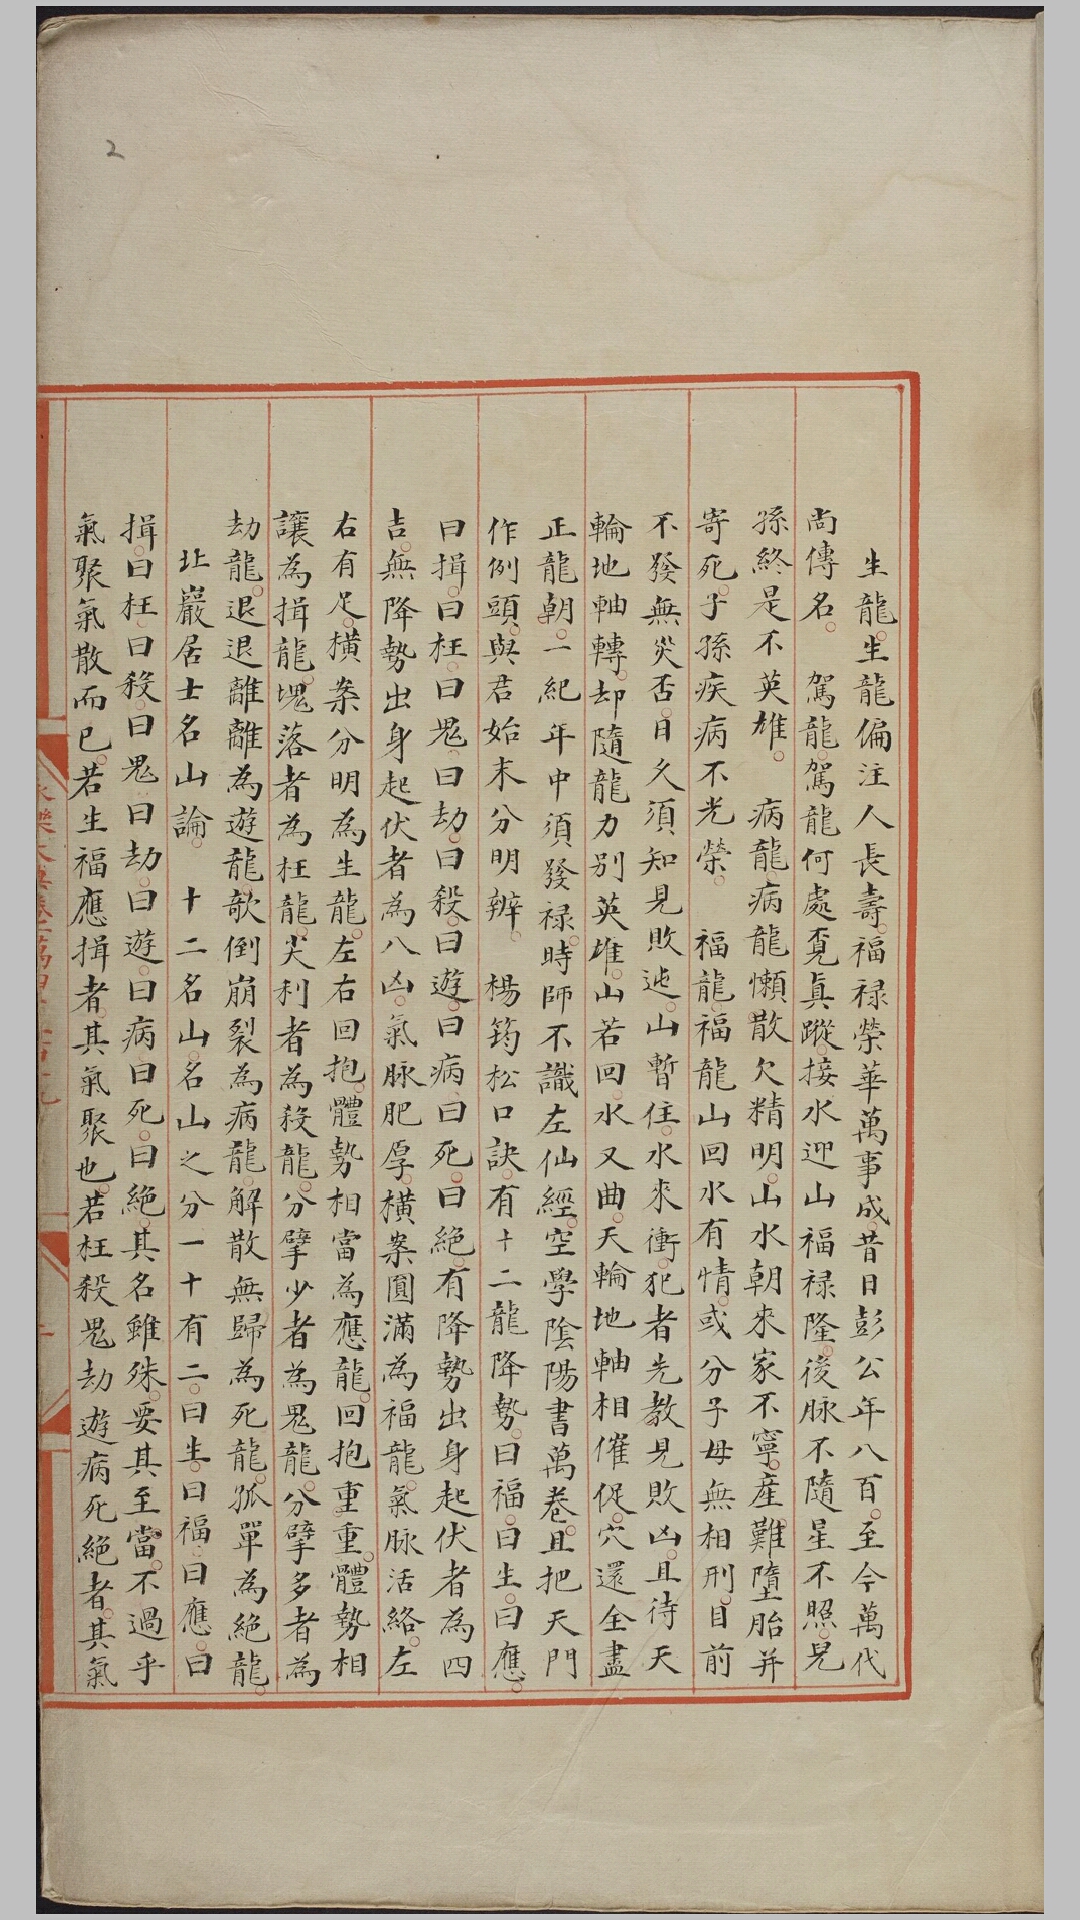 生龍生龍偏注人長壽福祿榮華萬事成昔日彭公年八百至今萬代
尚傳名　駕龍駕龍何處覓真蹤接水迎山福祿隆後脉不隨星不照兒
孫終是不英雄　病龍病龍懶散欠精明山水朝來家不寧產難墮胎并
寄死子孫疾病不光榮　福龍福龍山回水有情或分子母無相刑目前
不發無災否日久須知見敗迍山暫住水來衝犯者先教見敗凶且待天
輪地軸轉却隨龍力別英雄山若回水又曲天輪地軸相催促穴還全盡
正龍朝一紀年中須發祿時師不識左仙經空學陰陽書萬卷且把天門
作例頭與君始末分明辨　楊筠松口訣有十二龍降勢曰福曰生曰應
曰揖曰枉曰鬼曰劫曰殺曰遊曰病曰死曰絕有降勢出身起伏者為四
吉無降勢出身起伏者為八凶氣脉肥厚橫案圓滿為福龍氣脉活絡左
右有足橫案分明為生龍左右回抱體勢相當為應龍回抱重重體勢相
讓為揖龍塊落者為枉龍尖利者為殺龍分擘少者為鬼龍分擘多者為
劫龍退退離離為遊龍欹倒崩裂為病龍解散無歸為死龍孤單為絕龍
北巖居士名山論　十二名山名山之分一十有二曰生曰福曰應曰
揖曰枉曰殺曰鬼曰劫曰遊曰病曰死曰絕其名雖殊要其至當不過乎
氣聚氣散而已若生福應揖者其氣聚也若枉殺鬼劫遊病死絕者其氣
2